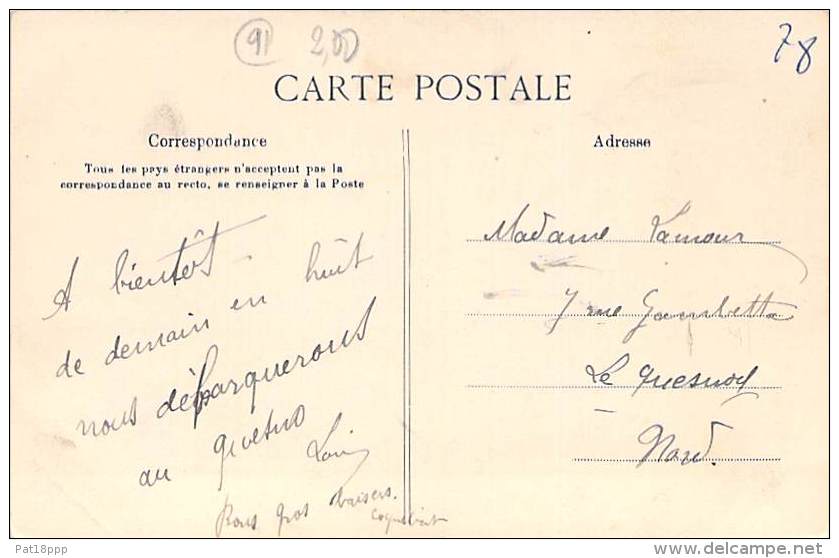 91 2,00
78
CARTE POSTALE
Correspondance
Tous les pays étrangers n'acceptent pas la
correspondance au recto, se renseigner à la Poste
A bientôt -
de demain en huit
nous débarquerons
au Quesno
Louis
Bons gros baisers.
Adresse
Madame Lamour
7 rue Gambetta
Le Quesnoy
Nord.
Pat18ppp
delcampe.net